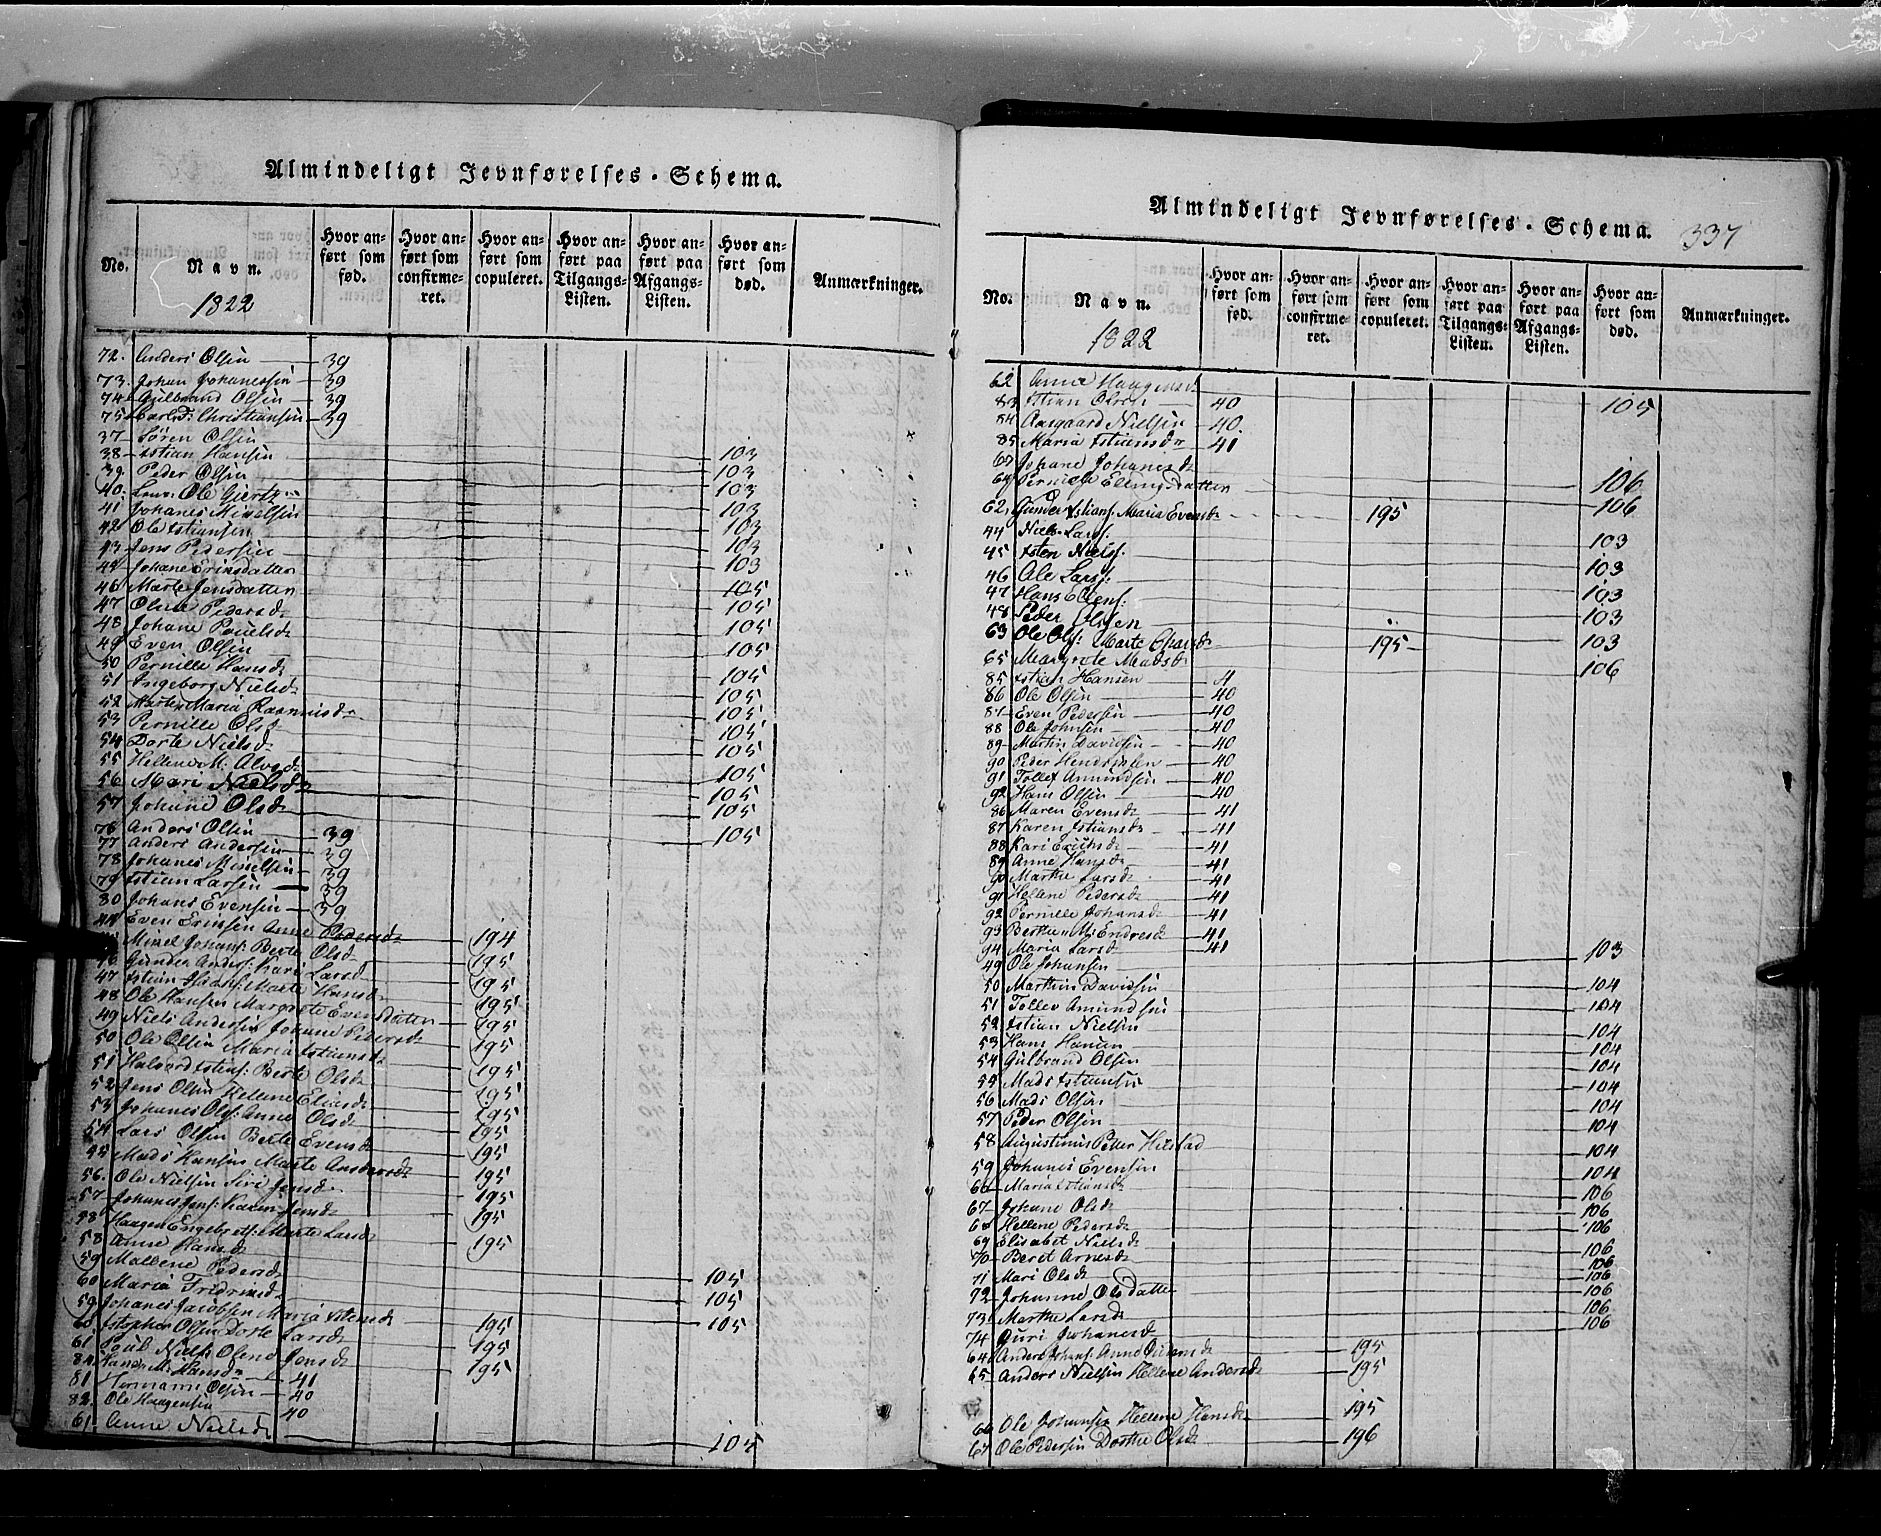 Almindeligt Jevnførelses-Schema.
No. Navn. Hvor anført som fød. Hvor anført som confirmeret. Hvor anført som copuleret. Hvor anført paa Tilgangs-Listen. Hvor anført paa Afgangs-Listen. Hvor anført som død. Anmærkninger.
1822
72. Anders Olsen 39
73. Johan Johanessen 39
74 Gulbrand Olsen 39
75 Carl Christiansen 39
37 Søren Olsen 103
38 Xstian Hansen 103
39 Peder Olsen 103
40. Ole Giertz 103
41 Johanes Mikelsen 103
42 Ole Xstiansen 103
43 Jens Pedersen 103
Johane Erinsdatter 105
46 Marte Jensdatter 105
47 Oline Pedersd 105
48 Johane Pouelsd 105
49 Even Olsen
50 Pernille Hansd 105
51 Ingeborg Nielsd 105
52 Marte Maria Rasmusd 105
53 Pernille Olsd 105
54 Dorte Nielsd 105
55 Hellene M: 105
56 Mari Nielsd 105
57 Johane Olsd 105
76 Anders Olsen 39
77 Anders Andersen 39
78 Johanes Mikelsen 39
79 Xstian Larsen 39
80 Johans Evensen 39
Even Erinsen Anne Pedersd 194
Mikel Johans: Berte Olsd 195
46 Gunder Anders: Kari Larsd 195
47 Xstian Marte Hansd 195
48 Ole Hansen Margrete Evensdatter 195
49 Niels Andersen Johanne Pedersd 195
50 Ole Olsen Maria Xstiansd 195
51 Halvord Xstians: Berte Olsd 195
52 Jens Olsen Hellene Eliasd 195
53 Johanes Ols: Anne Olsd 195
54 Lars Olsen Berte Evensd 195
55 Mads Hansen Marte Andersd 195
56. Ole Nielsen Siri Jensd 195
57 Johanes Jens: Karen Jensd 195
58 Haagen Engebrets: Marte Larsd 195
58 Anne Hansd 105
59 Mallene Pedersd 105
60 Maria 105
59 Johanes Jacobsen Maria 195
60 Xstopher Olsen Dorte Larsd 195
61 Poul Niels: Olene Jensd 195
M: Hansd 41
81 Hermann Olsen 40
82. Ole Haagensen 40
61. Anne Nielsd 105
Almindeligt Jevnførelses-Schema. 337
No. Navn. Hvor anført som fød. Hvor anført som confirmeret. Hvor anført som copuleret. Hvor anført paa Tilgangs-Listen. Hvor anført paa Afgangs-Listen. Hvor anført som død. Anmærkninger.
1822
62 Anne Haagensd 105
83 Xstian Olsen 40
84 Aasgaard Nielsen 40.
85 Maria Xstiansd 41
Johane Johanesd 106
64 Pernille Ellingsdatter 106
62. Gunder Xstians: Maria Evensd 195
44 Niels Lars: 103
45 Xsten Niels: 103
46 Ole Lars: 103
47 Hans Ellens: 103
48 Peder Olsen 103
63 Ole Ols: Marte 195
65 Margrete Madsd 106
85 Xstian Hansen
86 Ole Olsen 40
87 Even Pedersen 40
88 Ole Johnsen 40
89 Martin Davidsen 40
90 Peder Hendriksen 40
91 Tollef Amundsen 40
92 Hans Olsen 40
86 Maren Evensd 41
87 Karen Xstiansd 41
88 Kari Erichsd 41
89 Anne Hansd 41
90 Marthe Larsd 41
91 Hellene Pedersd 41
92 Pernille Johansd 41
93 Berthe M: Endresd 41
94 Maria Larsd 41
49 Ole Johansen 103
50 Marthin Davidsen 104
51 Tollev Amundsen 104
52 Xstian Nielsen 104
53 Hans Hansen 104
54 Gulbrand Olsen 104
55 Mads Xstiansen 104
56 Mads Olsen 104
57 Peder Olsen 104
58 Augustinus Peter 104
59 Johanes Evensen 104
66 Maria Xstiansd 106
67 Johane Olsd 106
68 Hellene Pedersd 106
69 Elisabet Nielsd 106
70 Beret Arnesd 106
71 Mari Olsd 106
72 Johanne Olsdatter 106
73 Marthe Larsd 106
74 Guri Johanesd 106
64 Anders Johans: Anne 195
65 Anders Nielsen Hellene Andersd 195
66 Ole Johansen Hellene Hansd 195
67 Ole Pedersen Dorthe Olsd 196